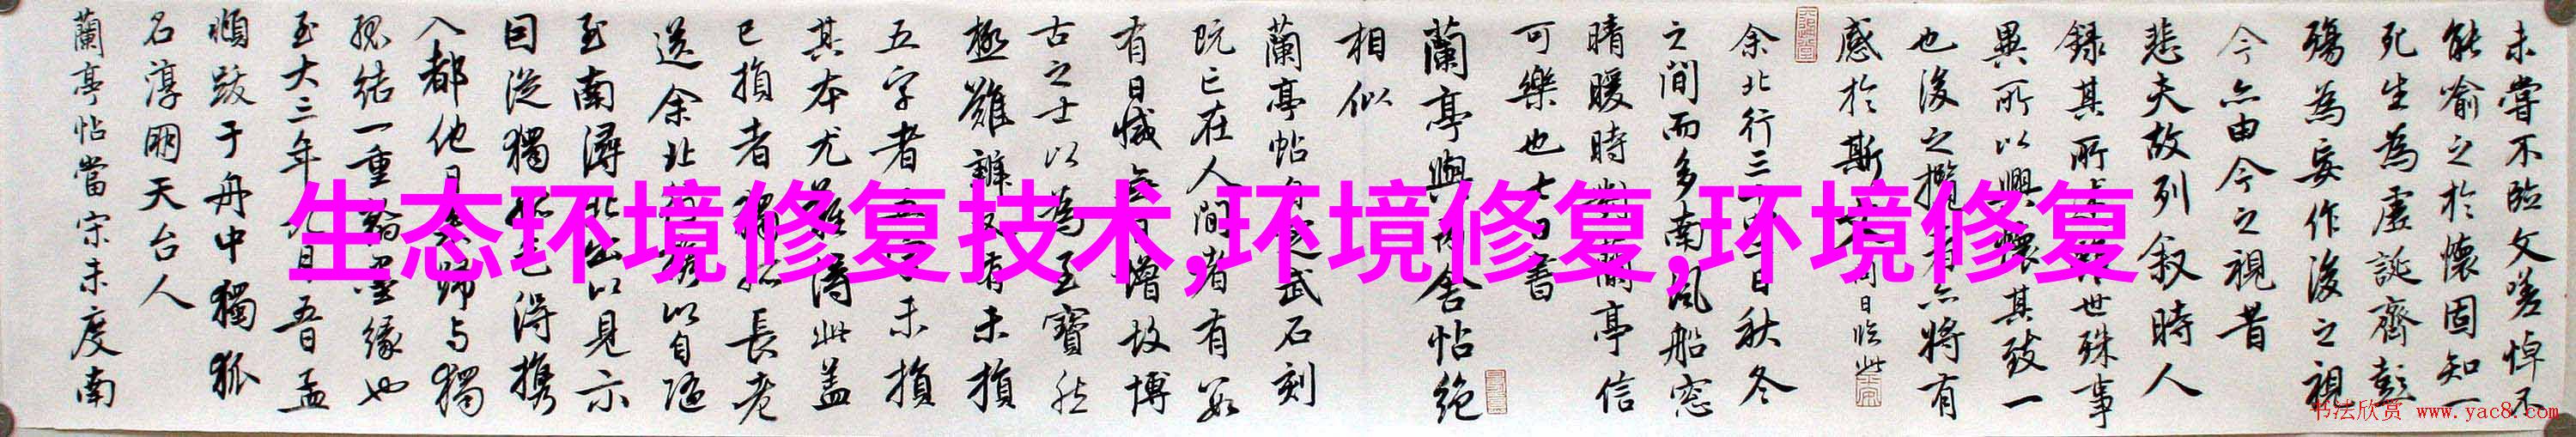 未嘗不臨文嗟悼不
能喻之於懷固知一
死生為虛誕齊彭
殤為妄作後之視
今亦由今之視昔
悲夫故列叙時人
錄其所述雖世殊事
異所以興懷其致一
也後之攬者亦將有
感於斯文
余北行三十二日秋冬
之間而多南風船窓
晴暖時對蘭亭信
可樂也七日書
蘭亭與丙舍帖絶
相似
蘭亭帖自定武石刻
既亡在人間者有數
有日減無日增故博
古之士以為至寶然
極難辨又有未損
五字者五字未損
其本尤難得此蓋
已損者獨孤長老
送余北行携以自隨
至南潯北出以見示
因從獨孤乞得携
入都他日來歸與獨
孤結一重翰墨緣也
至大三年九月五日孟
頫跋于舟中獨孤
名淳朋天台人
蘭亭帖當宋未度南
生态环境修复技术,环境修复,环境修复
书法欣赏 www.yac8.com